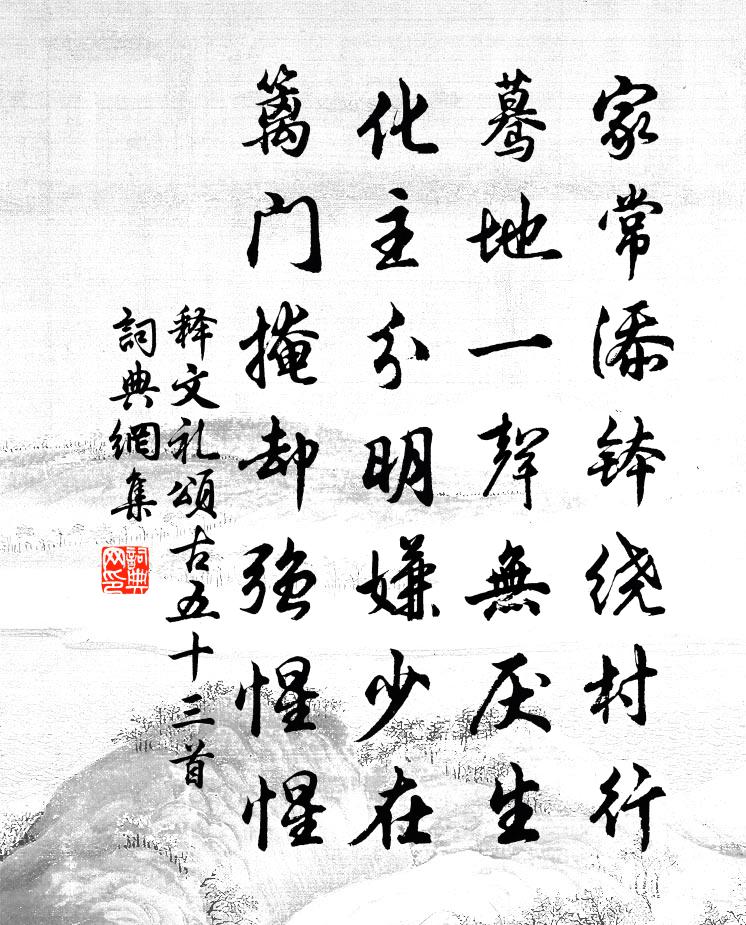 家常添钵绕村行
蓦地一聲無厌生
化主分明嫌少在
篱門掩却强惺惺
释文礼頌古五十三首
詞典網集
詞典网印